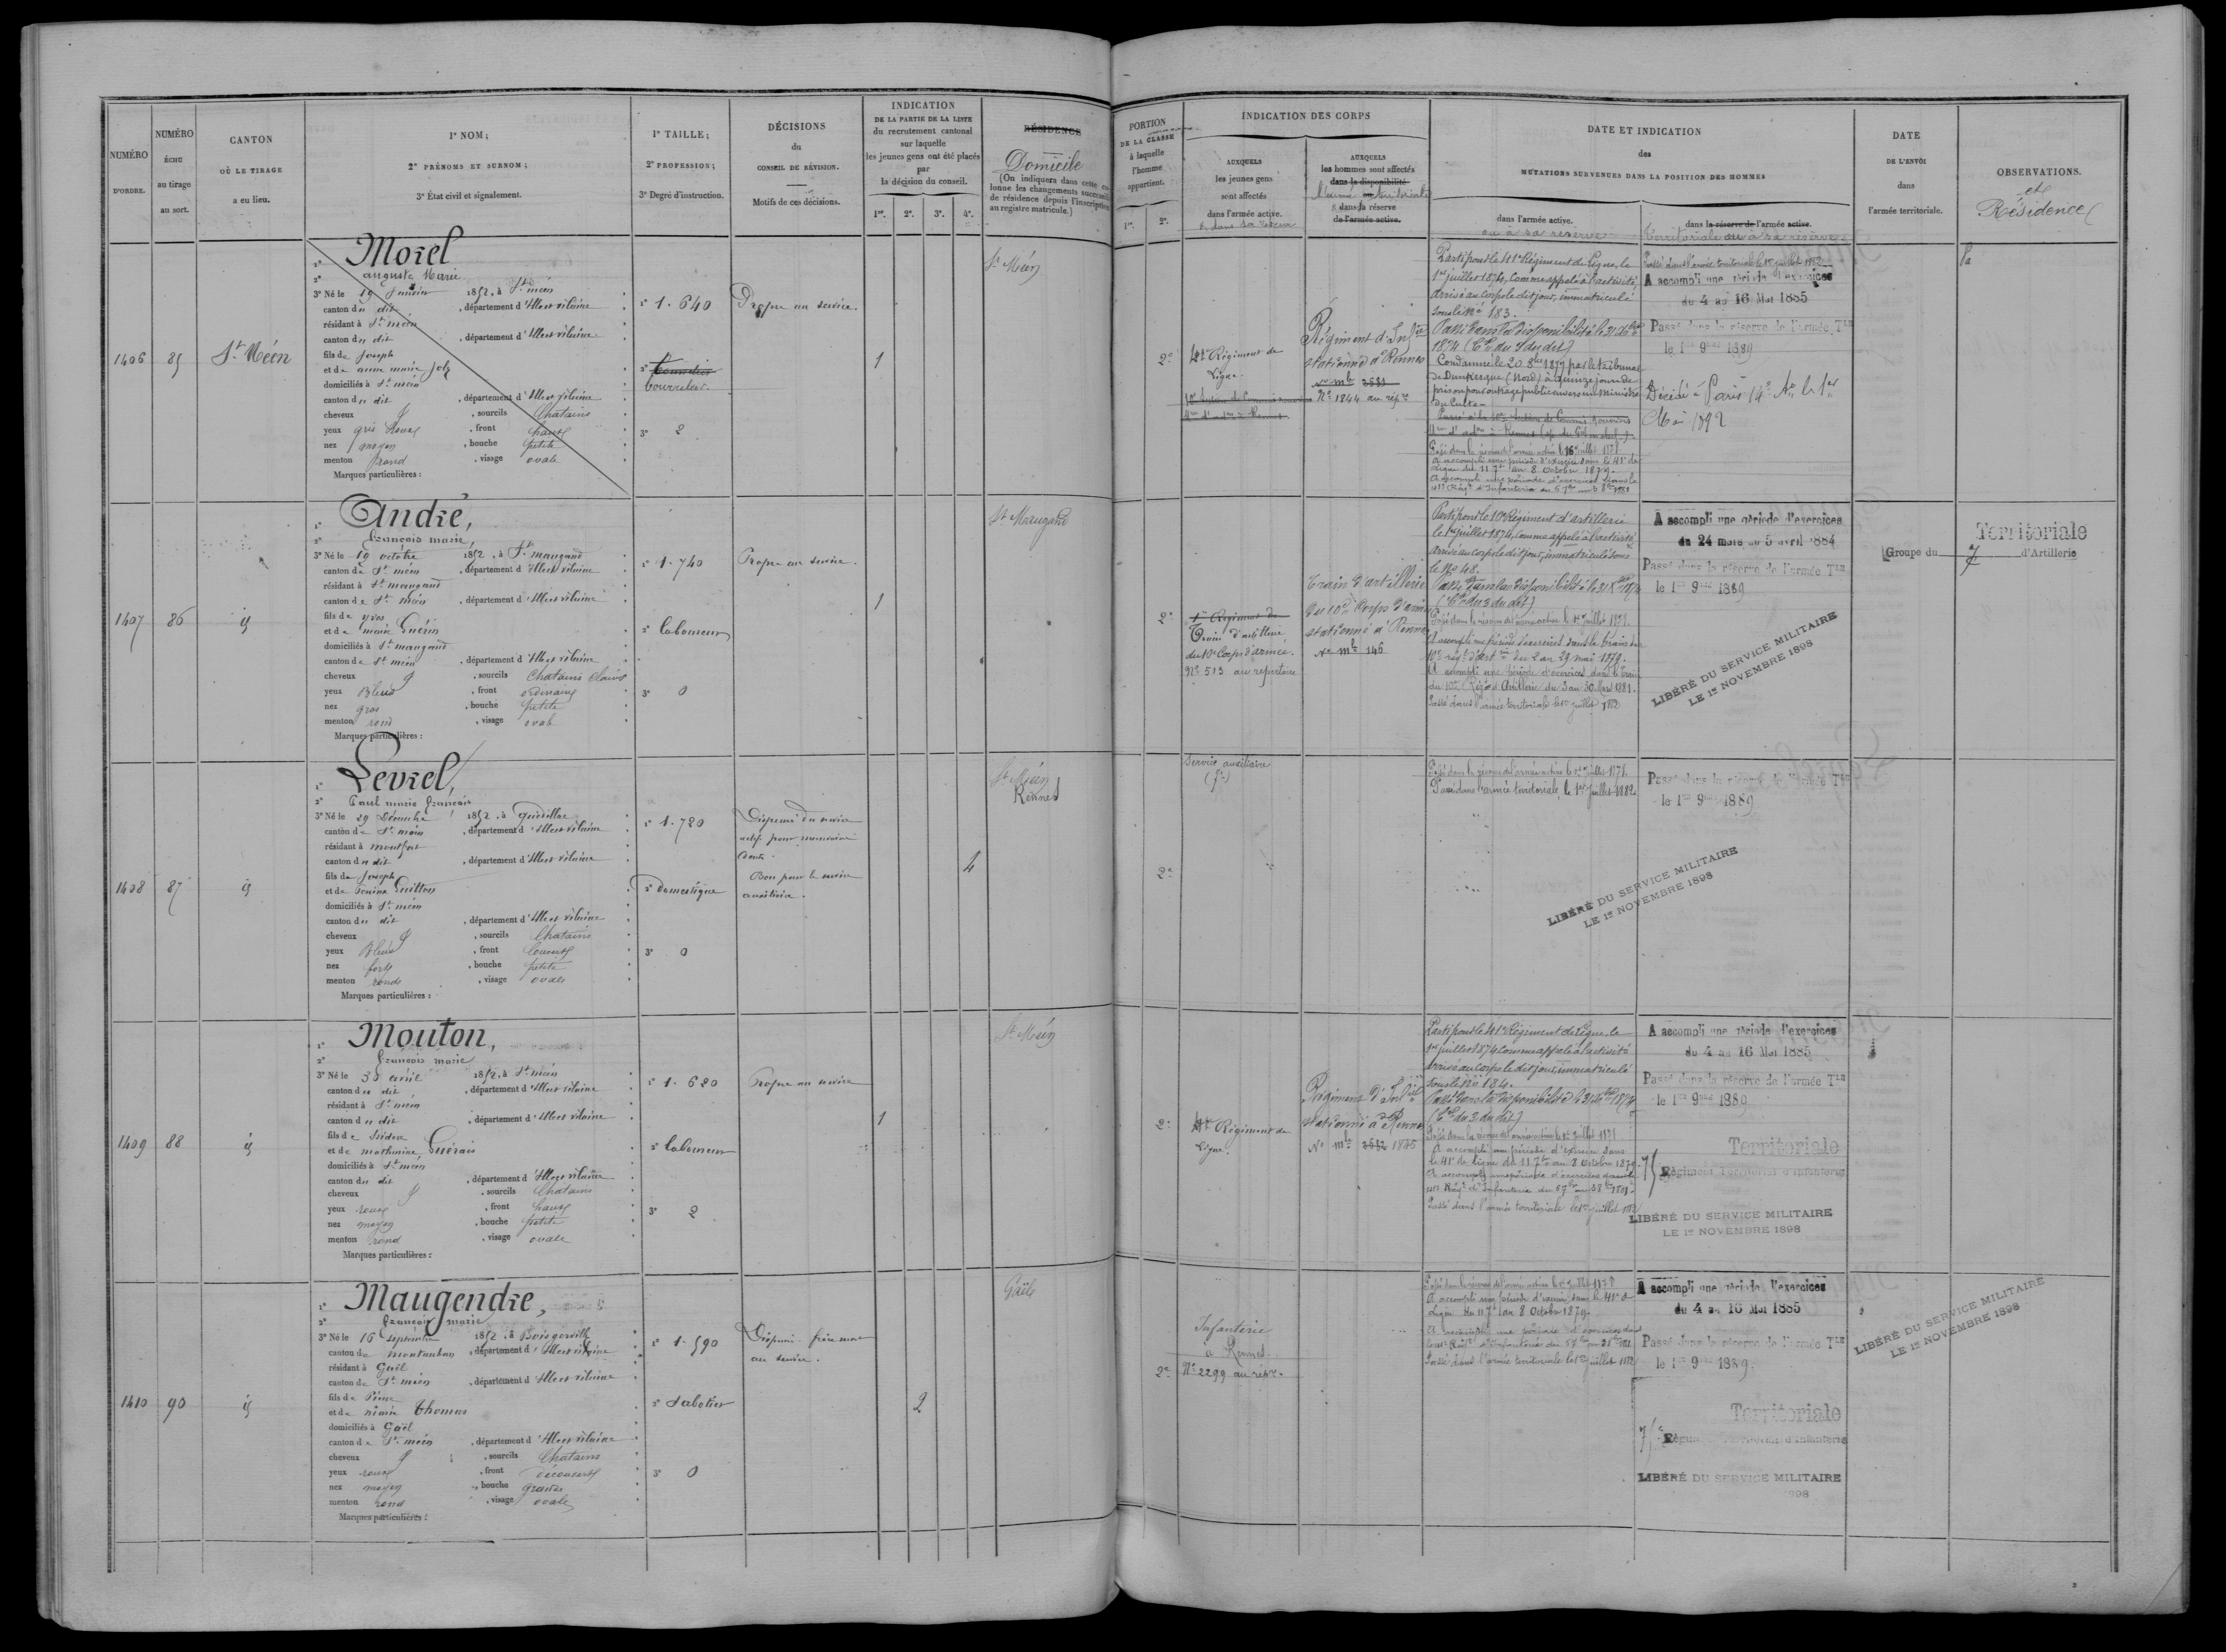 NUMÉRO
D'ORDRE.
NUMÉRO
ÉCHU
au tirage
au sort.
CANTON
OÙ LE TIRAGE
a eu lieu.
1° NOM;
2° PRÉNOMS ET SURNOM;
3° État civil et signalement.
1° TAILLE;
2° PROFESSION;
3° Degré d'instruction.
DÉCISIONS
du
CONSEIL DE RÉVISION.
Motifs de ces décisions.
INDICATION
DE LA PARTIE DE LA LISTE
du recrutement cantonal
sur laquelle
les jeunes gens ont été placés
par
la décision du conseil.
1re. 2e. 3e. 4e.
RÉSIDENCE
Domicile
(On indiquera dans cette colonne les changements successifs de résidence depuis l'inscription au registre matricule.)
PORTION
DE LA CLASSE
à laquelle
l'homme
appartient.
1re. 2e.
INDICATION DES CORPS
AUXQUELS
les jeunes gens
sont affectés
dans l'armée active.
AUXQUELS
les hommes sont affectés
dans la disponibilité
dans la réserve
de l'armée active.
DATE ET INDICATION
des
MUTATIONS SURVENUES DANS LA POSITION DES HOMMES
dans l'armée active.
ou à sa réserve
dans la réserve de l'armée active.
Territoriale ou à sa réserve
DATE
DE L'ENVOI
dans
l'armée territoriale.
OBSERVATIONS.
et
Résidence
1406
85
St. Méen
1° Morel
2° auguste Marie
3° Né le 19 1852, à St. méen
canton du dit, département d'Ille et vilaine
résidant à St. méen
canton du dit, département d'Ille et vilaine
fils de Joseph
et de anne marie
domiciliés à St. méen
canton du dit, département d'Ille et vilaine
cheveux, sourcils Chatains
yeux gris, front haut
nez moyen, bouche petite
menton rond, visage ovale
Marques particulières :
1° 1.640
2° bourrelier
3° 2
Propre au service.
1
St. Méen
2e
41e Régiment de
Ligne.
Régiment d'Inf.ie
stationné à Rennes
N° 1844 au rép.re
Parti pour le 41e Régiment de Ligne, le
1er juillet 1874, comme appelé à l'activité
arrivé au corps le dit jour, immatriculé
sous le N° 183.
Passé dans la disponibilité le 31 Xbre
1874
Condamné le 20 1879 par le tribunal
de Dunkerque (Nord) à quinze jours de
prison pour outrage public envers un Ministre
du Culte
A accompli une période d'exercices dans le 41e de
Ligne du 11 7bre au 8 Octobre 1879.
Passé dans l'armée territoriale le 1er juillet 1882
A accompli une période d'exercices
du 4 au 16 Mai 1885
Passé dans la réserve de l'armée Tle
le 1er 9bre 1889
Décédé à Paris 14e Ar. le 1er
Mai 1892
1407
86
id
1° André,
2° françois marie,
3° Né le 19 octobre 1852, à St. maugand
canton de St. méen, département d'Ille et vilaine
résidant à St. maugand
canton de St. méen, département d'Ille et vilaine
fils de yves
et de marie Guérin
domiciliés à St. maugand
canton de St. méen, département d'Ille et vilaine
cheveux, sourcils Chatains Clairs
yeux Bleus, front ordinaire
nez gros, bouche petite
menton rond, visage ovale
Marques particulières :
1° 1.740
2° laboureur
3° 0
Propre au service.
1
St. Maugand
2e
Train d'artillerie
du 10e Corps d'armée.
N° 513 au répertoire
Train d'artillerie
du 10e Corps d'armée
stationné à Rennes
N° mle 146
Parti pour le 10e Régiment d'artillerie
le 1er juillet 1874, comme appelé à l'activité
arrivé au corps le dit jour, immatriculé sous
le No 48.
Passé dans la disponibilité le 31 Xbre 1874
(Cre du 3 du dit)
A accompli une période d'exercices dans le train du
10e régt d'artie du 2 au 29 mai 1879.
A accompli une période d'exercices dans le train
du 10e Régt d'Artillerie du 3 au 30 Mars 1881.
Passé dans l'armée territoriale le 1er juillet 1882
A accompli une période d'exercices
du 24 mars au 5 avril 1884
Passé dans la réserve de l'armée Tle
le 1er 9bre 1889
LIBÉRÉ DU SERVICE MILITAIRE
LE 1er NOVEMBRE 1898
Territoriale
Groupe du 7 d'Artillerie
1408
87
id
1° Levrel,
2° Paul marie françois
3° Né le 29 Décembre 1852, à
canton de St. méen, département d'Ille et vilaine
résidant à montfort
canton du dit, département d'Ille et vilaine
fils de Joseph
et de Guitton
domiciliés à St. méen
canton du dit, département d'Ille et vilaine
cheveux, sourcils Chatains
yeux Bleus, front Couvert
nez fort, bouche petite
menton rond, visage ovale
Marques particulières :
1° 1.720
2° Domestique
3° 0
Dispensé du service
actif pour mauvaise
dents.
Bon pour le service
auxiliaire.
4
St. Méen
Rennes
2e
Service auxiliaire
Passé dans l'armée territoriale, le 1er juillet 1882
Passé dans la réserve de l'armée Tle
le 1er 9bre 1889
LIBÉRÉ DU SERVICE MILITAIRE
LE 1er NOVEMBRE 1898
1409
88
id
1° Mouton,
2° françois marie
3° Né le 30 avril 1852, à St. méen
canton du dit, département d'Ille et vilaine
résidant à St. méen
canton du dit, département d'Ille et vilaine
fils de Isidore
et de mathurine Guérais
domiciliés à St. méen
canton du dit, département d'Ille et vilaine
cheveux, sourcils Chatains
yeux roux, front haut
nez moyen, bouche petite
menton rond, visage ovale
Marques particulières :
1° 1.620
2° laboureur
3° 2
Propre au service
1
St. Méen
2e
41e Régiment de
Ligne.
Régiment d'Inf.ie
stationné à Rennes
N° mle 1845
Parti pour le 41e Régiment de Ligne, le
1er juillet 1874 comme appelé à l'activité
arrivé au corps le dit jour, immatriculé
sous le N° 184.
Passé dans la disponibilité le 31 Xbre 1874
(Cre du 3 du dit)
A accompli une période d'exercices dans
le 41e de ligne du 11 7bre au 8 Octobre 1879.
Passé dans l'armée territoriale le 1er juillet 1882
A accompli une période d'exercices
du 4 au 16 Mai 1885
Passé dans la réserve de l'armée Tle
le 1er 9bre 1889
Territoriale
75 Régiment Territorial d'Infanterie
LIBÉRÉ DU SERVICE MILITAIRE
LE 1er NOVEMBRE 1898
1410
90
id
1° Maugendre,
2° françois marie
3° Né le 16 septembre 1852, à Boisgervilly
canton de montauban, département d'Ille et vilaine
résidant à Gaël
canton de St. méen, département d'Ille et vilaine
fils de Pierre
et de marie Thomas
domiciliés à Gaël
canton de St. méen, département d'Ille et vilaine
cheveux, sourcils Chatains
yeux roux, front découvert
nez moyen, bouche grande
menton rond, visage ovale
Marques particulières :
1° 1.590
2° Sabotier
3° 0
Dispensé. frère mort
au service.
2
Gaël
2e
Infanterie
à Rennes
N° 2299 au répre.
A accompli une période d'exercices dans le 41e de
Ligne du 11 7bre au 8 Octobre 1879.
Passé dans l'armée territoriale le 1er juillet 1882
A accompli une période d'exercices
du 4 au 16 Mai 1885
Passé dans la réserve de l'armée Tle
le 1er 9bre 1889
Territoriale
75e Régiment Territorial d'Infanterie
LIBÉRÉ DU SERVICE MILITAIRE
1898
LIBÉRÉ DU SERVICE MILITAIRE
LE 1er NOVEMBRE 1898